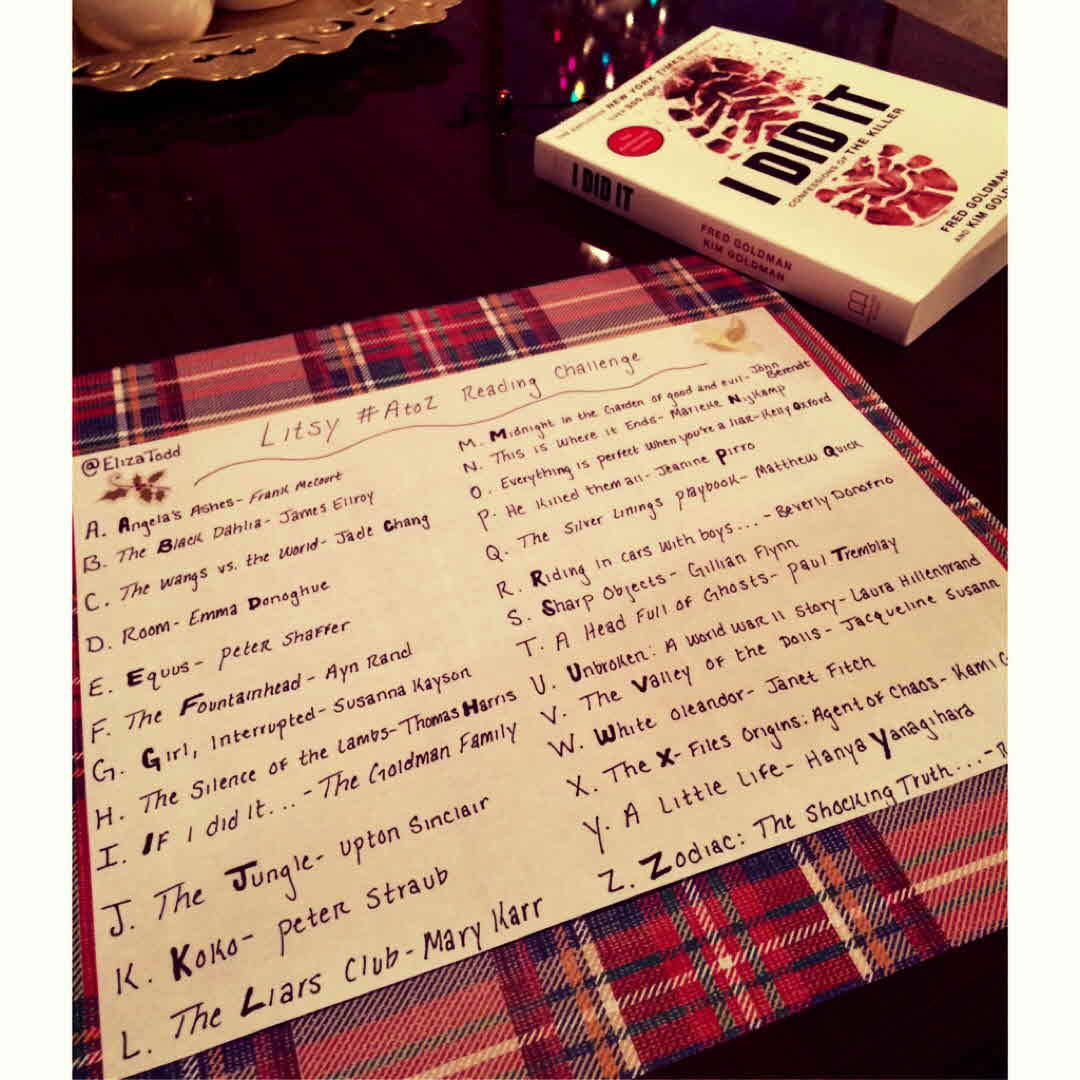 THE EXPLOSIVE NEW YORK TIMES
OVER 300,000
I DID IT
CONFESSIONS OF THE KILLER
FRED GOLDMAN
AND KIM
I DID IT
FRED GOLDMAN
KIM GOLDMAN
Litsy #AtoZ Reading Challenge
@ElizaTodd
A. Angela's Ashes- Frank McCourt
B. The Black Dahlia- James Ellroy
C. The Wangs vs. the World- Jade Chang
D. Room- Emma Donoghue
E. Equus- Peter Shaffer
F. The Fountainhead- Ayn Rand
G. Girl, Interrupted- Susanna Kayson
H. The Silence of the Lambs- Thomas Harris
I. IF I did it...- The Goldman Family
J. The Jungle- Upton Sinclair
K. Koko- Peter Straub
L. The Liars Club- Mary Karr
M. Midnight in the Garden of good and evil- John Berendt
N. This is where it Ends- Marieke Nijkamp
O. Everything is perfect when you're a liar- Kelly Oxford
P. He Killed them all- Jeanine Pirro
Q. The Silver Linings playbook- Matthew Quick
R. Riding in cars with boys...- Beverly Donofrio
S. Sharp Objects- Gillian Flynn
T. A Head Full of Ghosts- Paul Tremblay
U. Unbroken: A World War II Story- Laura Hillenbrand
V. The Valley of the Dolls- Jacqueline Susann
W. White Oleandor- Janet Fitch
X. The X-Files Origins: Agent of Chaos- Kami
Y. A Little Life- Hanya Yanagihara
Z. Zodiac: The Shocking Truth...-